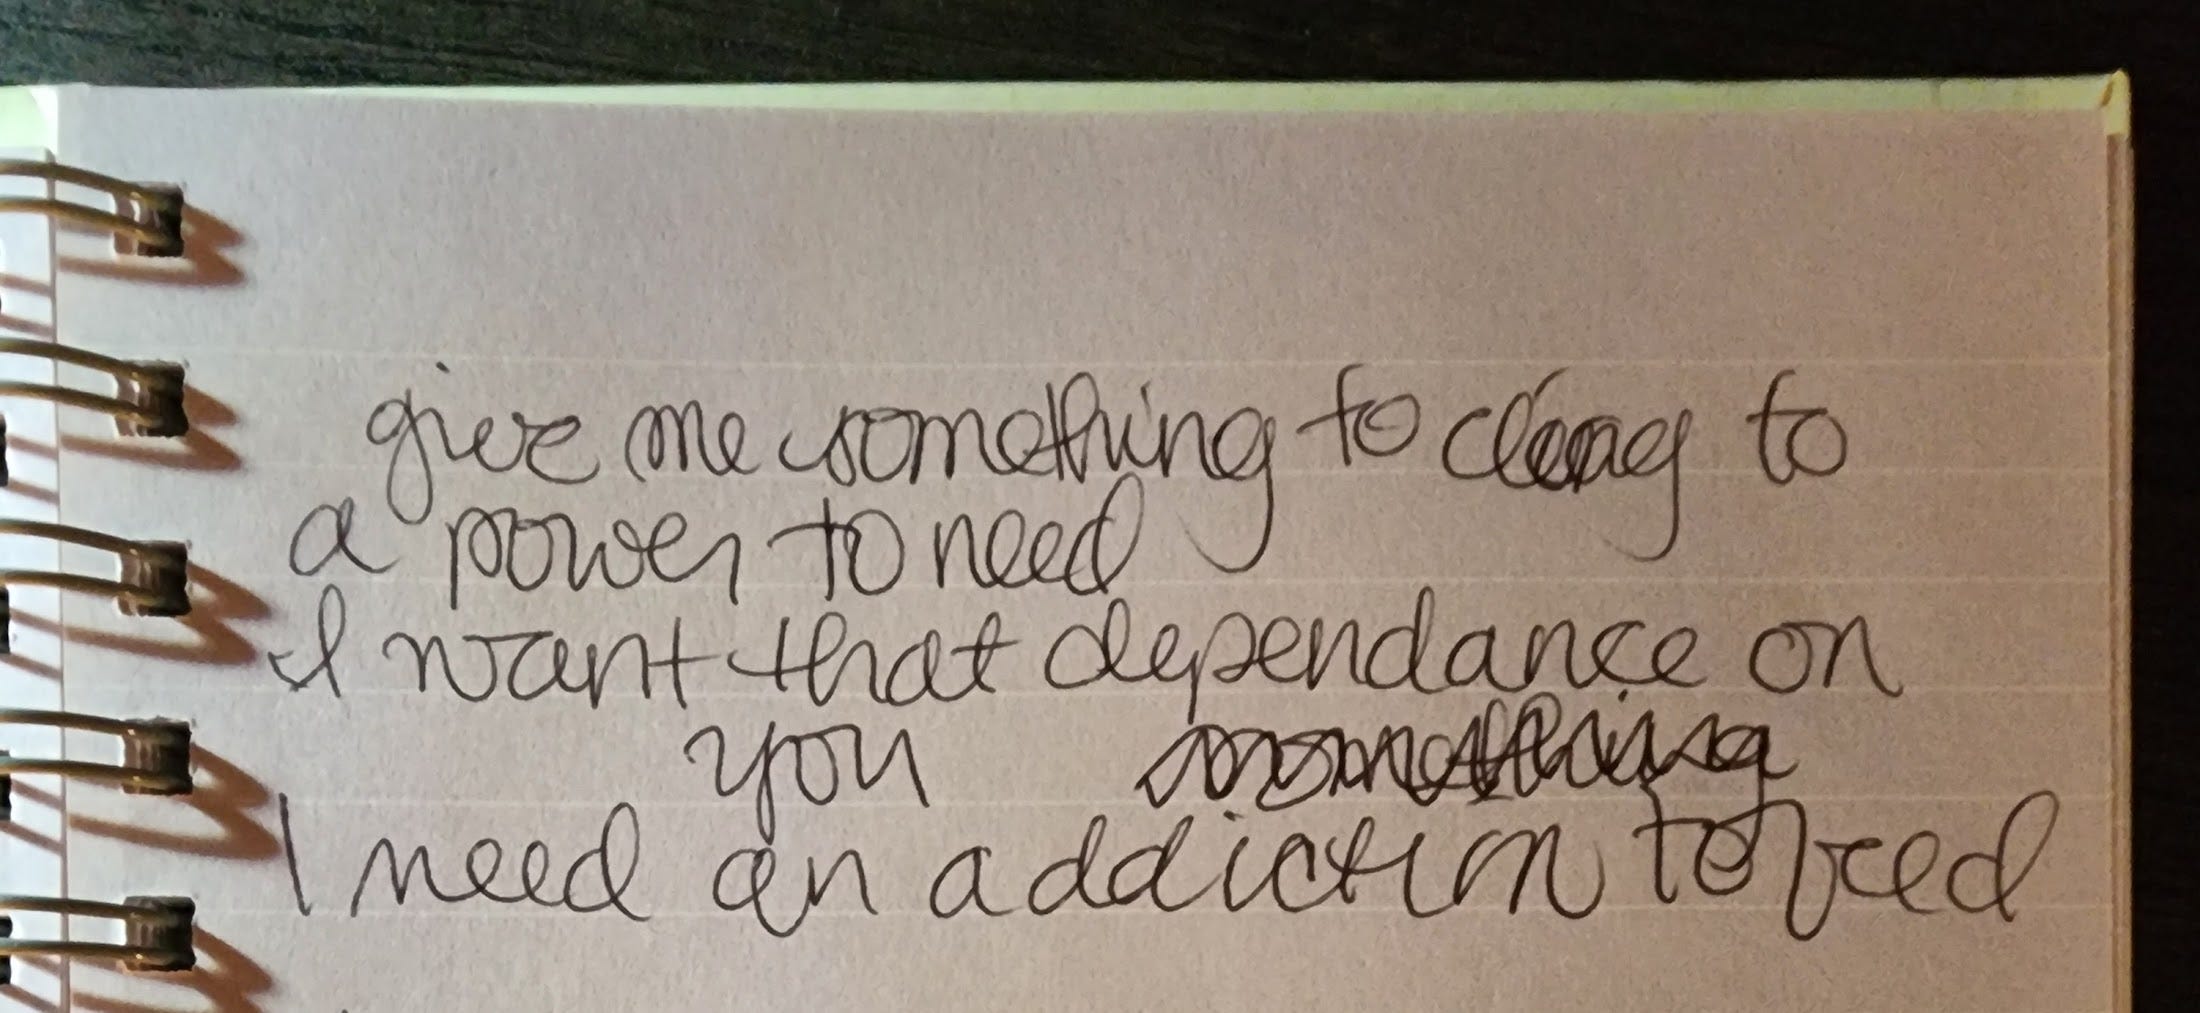 give me something to cling to
a power to need
I want that dependance on
you something
I need an addiction to feed